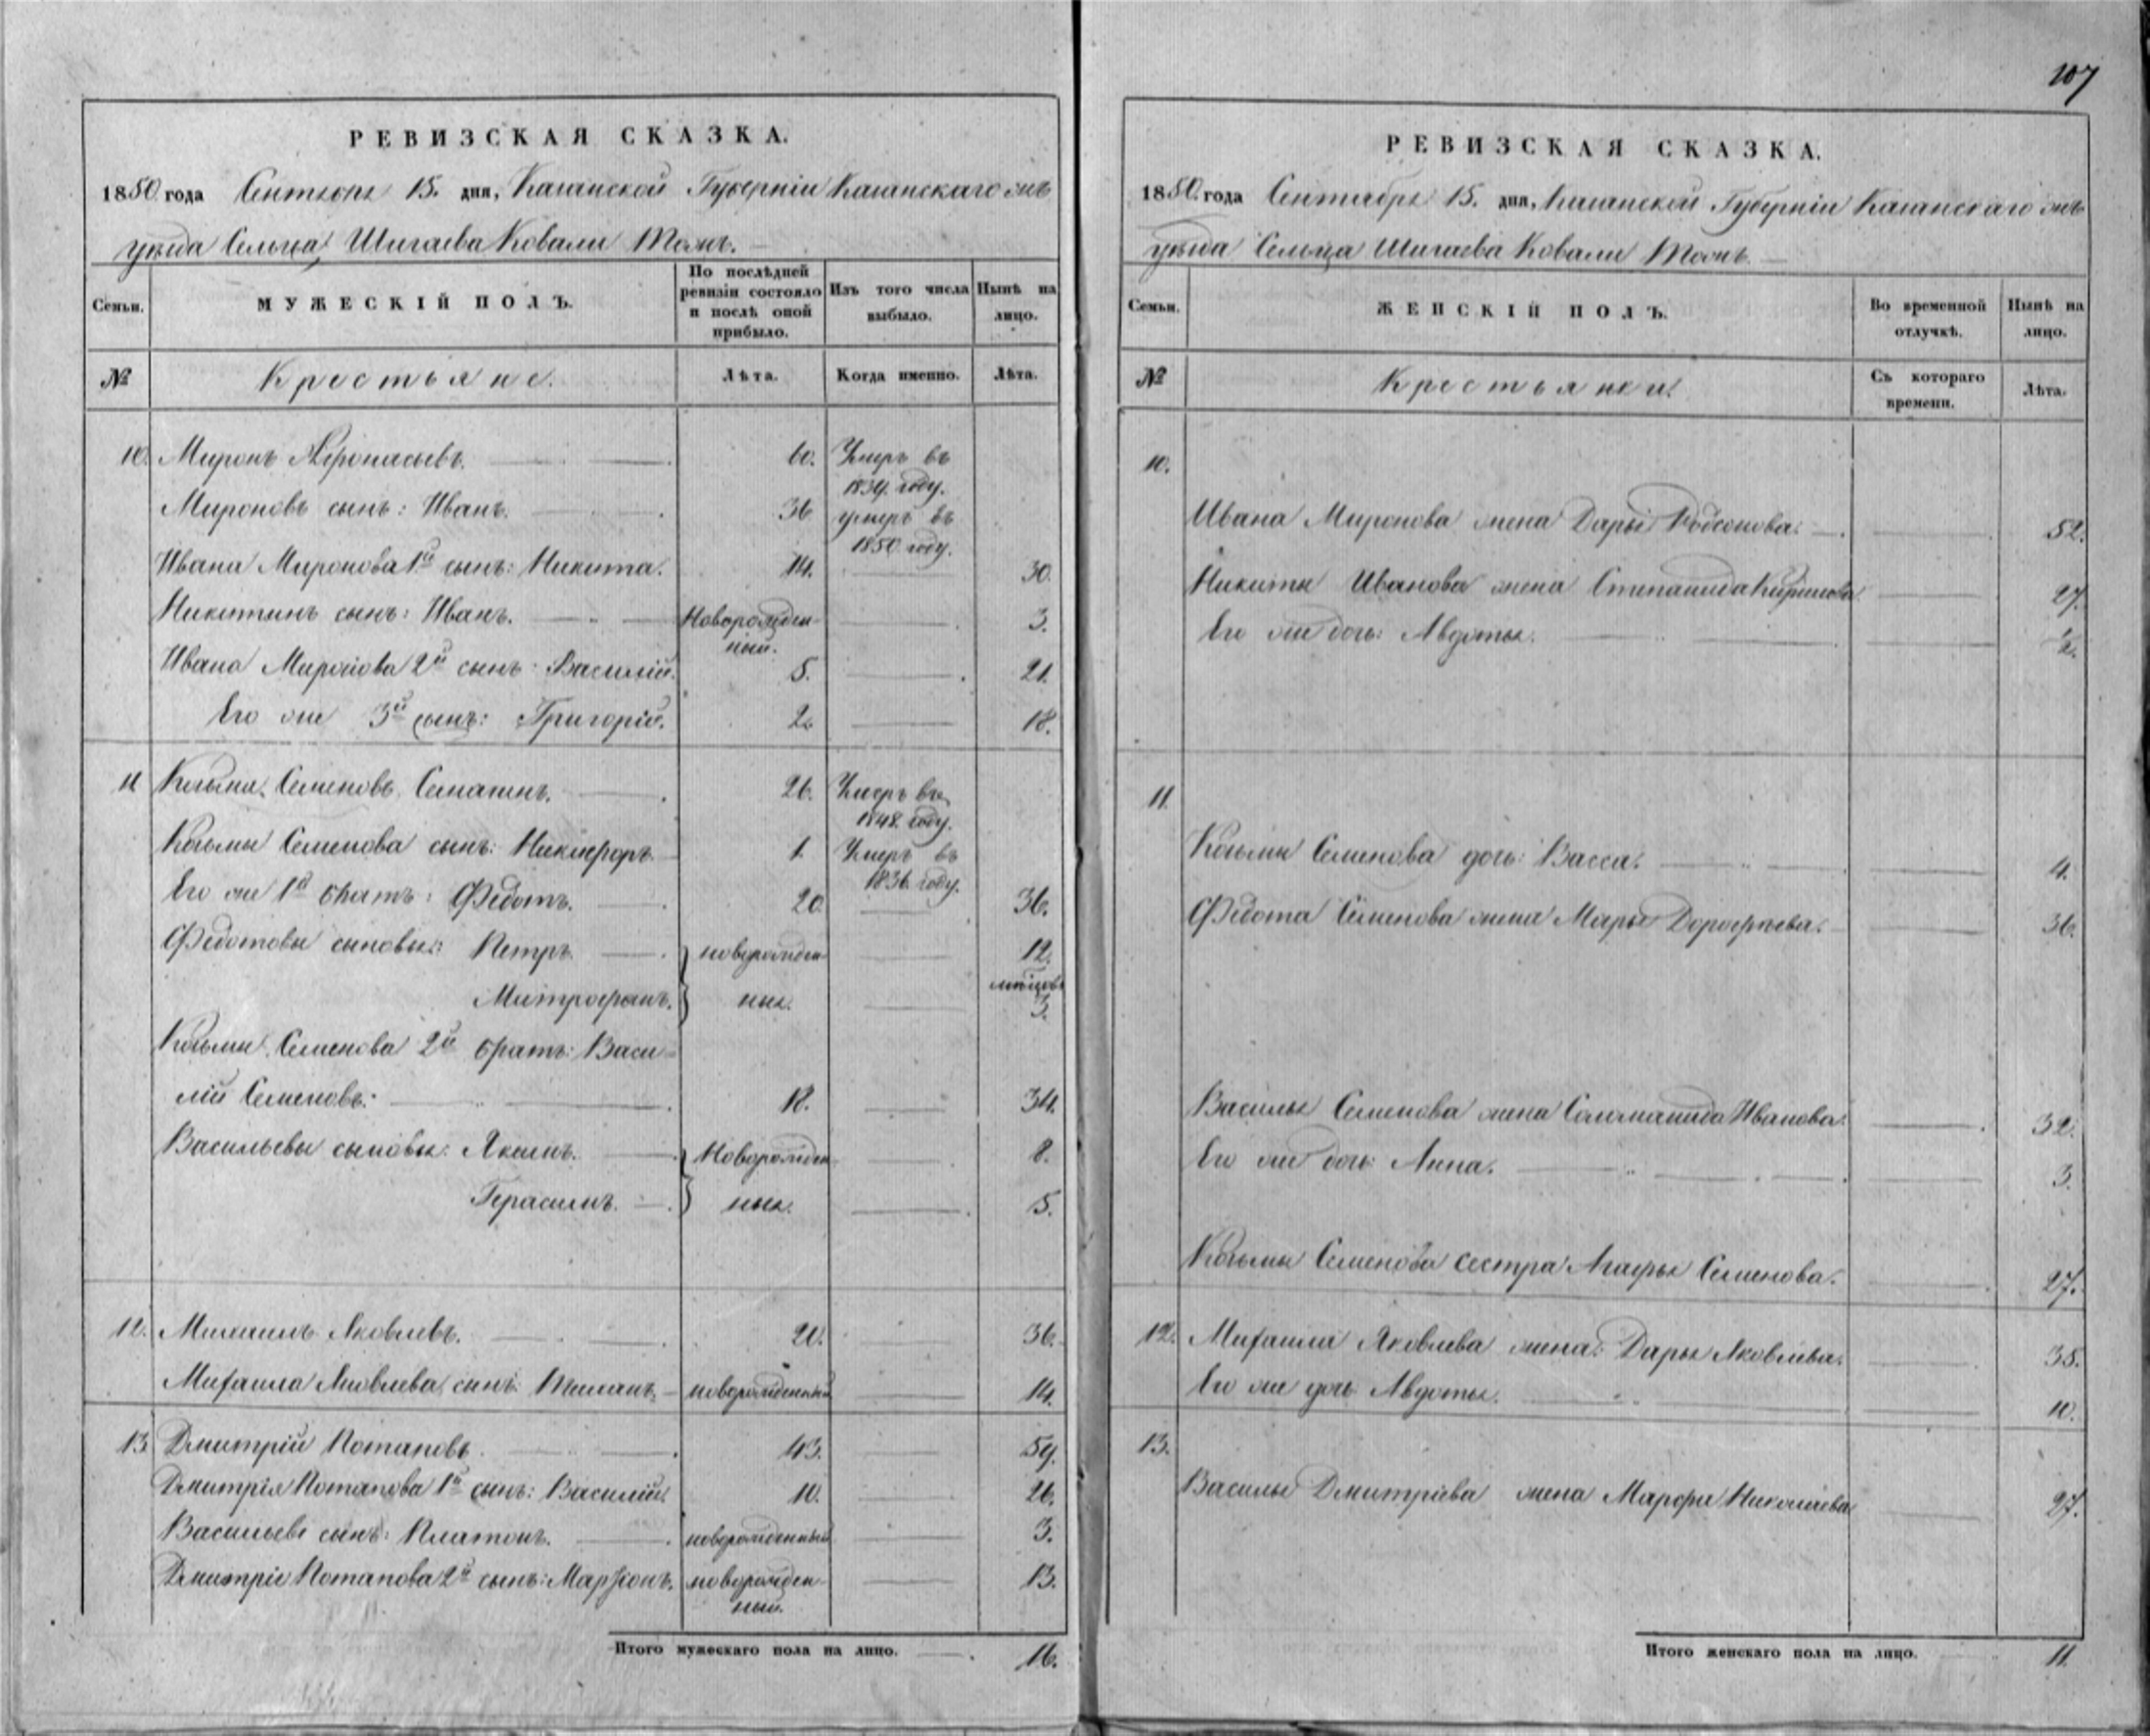 107
РЕВИЗСКАЯ СКАЗКА.
1850 года Сентября 15. дня, Казанской Губерніи Казанскаго
уѣзда Сельца Шигаева Ковали тожъ.
Семьи.
МУЖЕСКІЙ ПОЛЪ.
По послѣдней ревизіи состояло и послѣ оной прибыло.
Изъ того числа выбыло.
Нынѣ на лицо.
№
Крестьяне.
Лѣта.
Когда именно.
Лѣта.
10. Миронъ Афонасьевъ. 60. Умеръ въ
1834. году.
Мироновъ сынъ: Иванъ. 36 умеръ въ
1850 году.
Ивана Миронова 1й сынъ: Никита. 14. 30.
Никитинъ сынъ: Иванъ. Новорожден- 3.
ный.
Ивана Миронова 2й сынъ: Василій. 5. 21.
Его же 3й сынъ: Григорій. 2. 18.
11 Козьма Семеновъ 26. Умеръ въ
1848. году.
Козьмы Семенова сынъ: Никифоръ 1. Умеръ въ
1836. году.
Его же 1й братъ: Федотъ. 20. 36.
Федотовы сыновья: Петръ. новорожден 12.
мѣсцовъ
Митрофанъ. ныя. 3.
Козьмы Семенова 2й братъ: Васи-
лій Семеновъ: 18. 34.
Васильевы сыновья: Якимъ. Новорожден 8.
Герасимъ. ныя. 5.
12. Михаилъ Яковлевъ. 20. 36.
Михаила Яковлева сынъ: новорожденный 14.
13 Дмитрій Потаповъ. 43. 59.
Дмитрія Потапова 1й сынъ: Василій. 10. 26.
Васильевъ сынъ: Платонъ. новорожденный 3.
Дмитрія Потапова 2й сынъ: новорожден- 13.
ный.
Итого мужескаго пола на лицо. 16.
РЕВИЗСКАЯ СКАЗКА.
1850. года Сентября 15. дня, Казанской Губерніи Казанскаго
уѣзда Сельца Шигаева Ковали тожъ.
Семьи.
ЖЕНСКІЙ ПОЛЪ.
Во временной отлучкѣ.
Нынѣ на лицо.
№
Крестьянки.
Съ котораго времени.
Лѣта.
10.
Ивана Миронова жена Дарья 52.
Никиты Иванова жена Степанида 27.
Его же дочь: Авдотья. ½.
11.
Козьмы Семенова дочь: Васса. 4.
Федота Семенова жена Марья Дорофѣева. 36.
Василья Семенова жена Соломанида Иванова. 32.
Его же дочь: Анна. 3.
Козьмы Семенова сестра Агафья Семенова. 27.
12. Михаила Яковлева жена: Дарья Яковлева. 35.
Его же дочь Авдотья. 10.
13.
Василья Дмитріева жена Марфа Николаева 27.
Итого женскаго пола на лицо. 11.